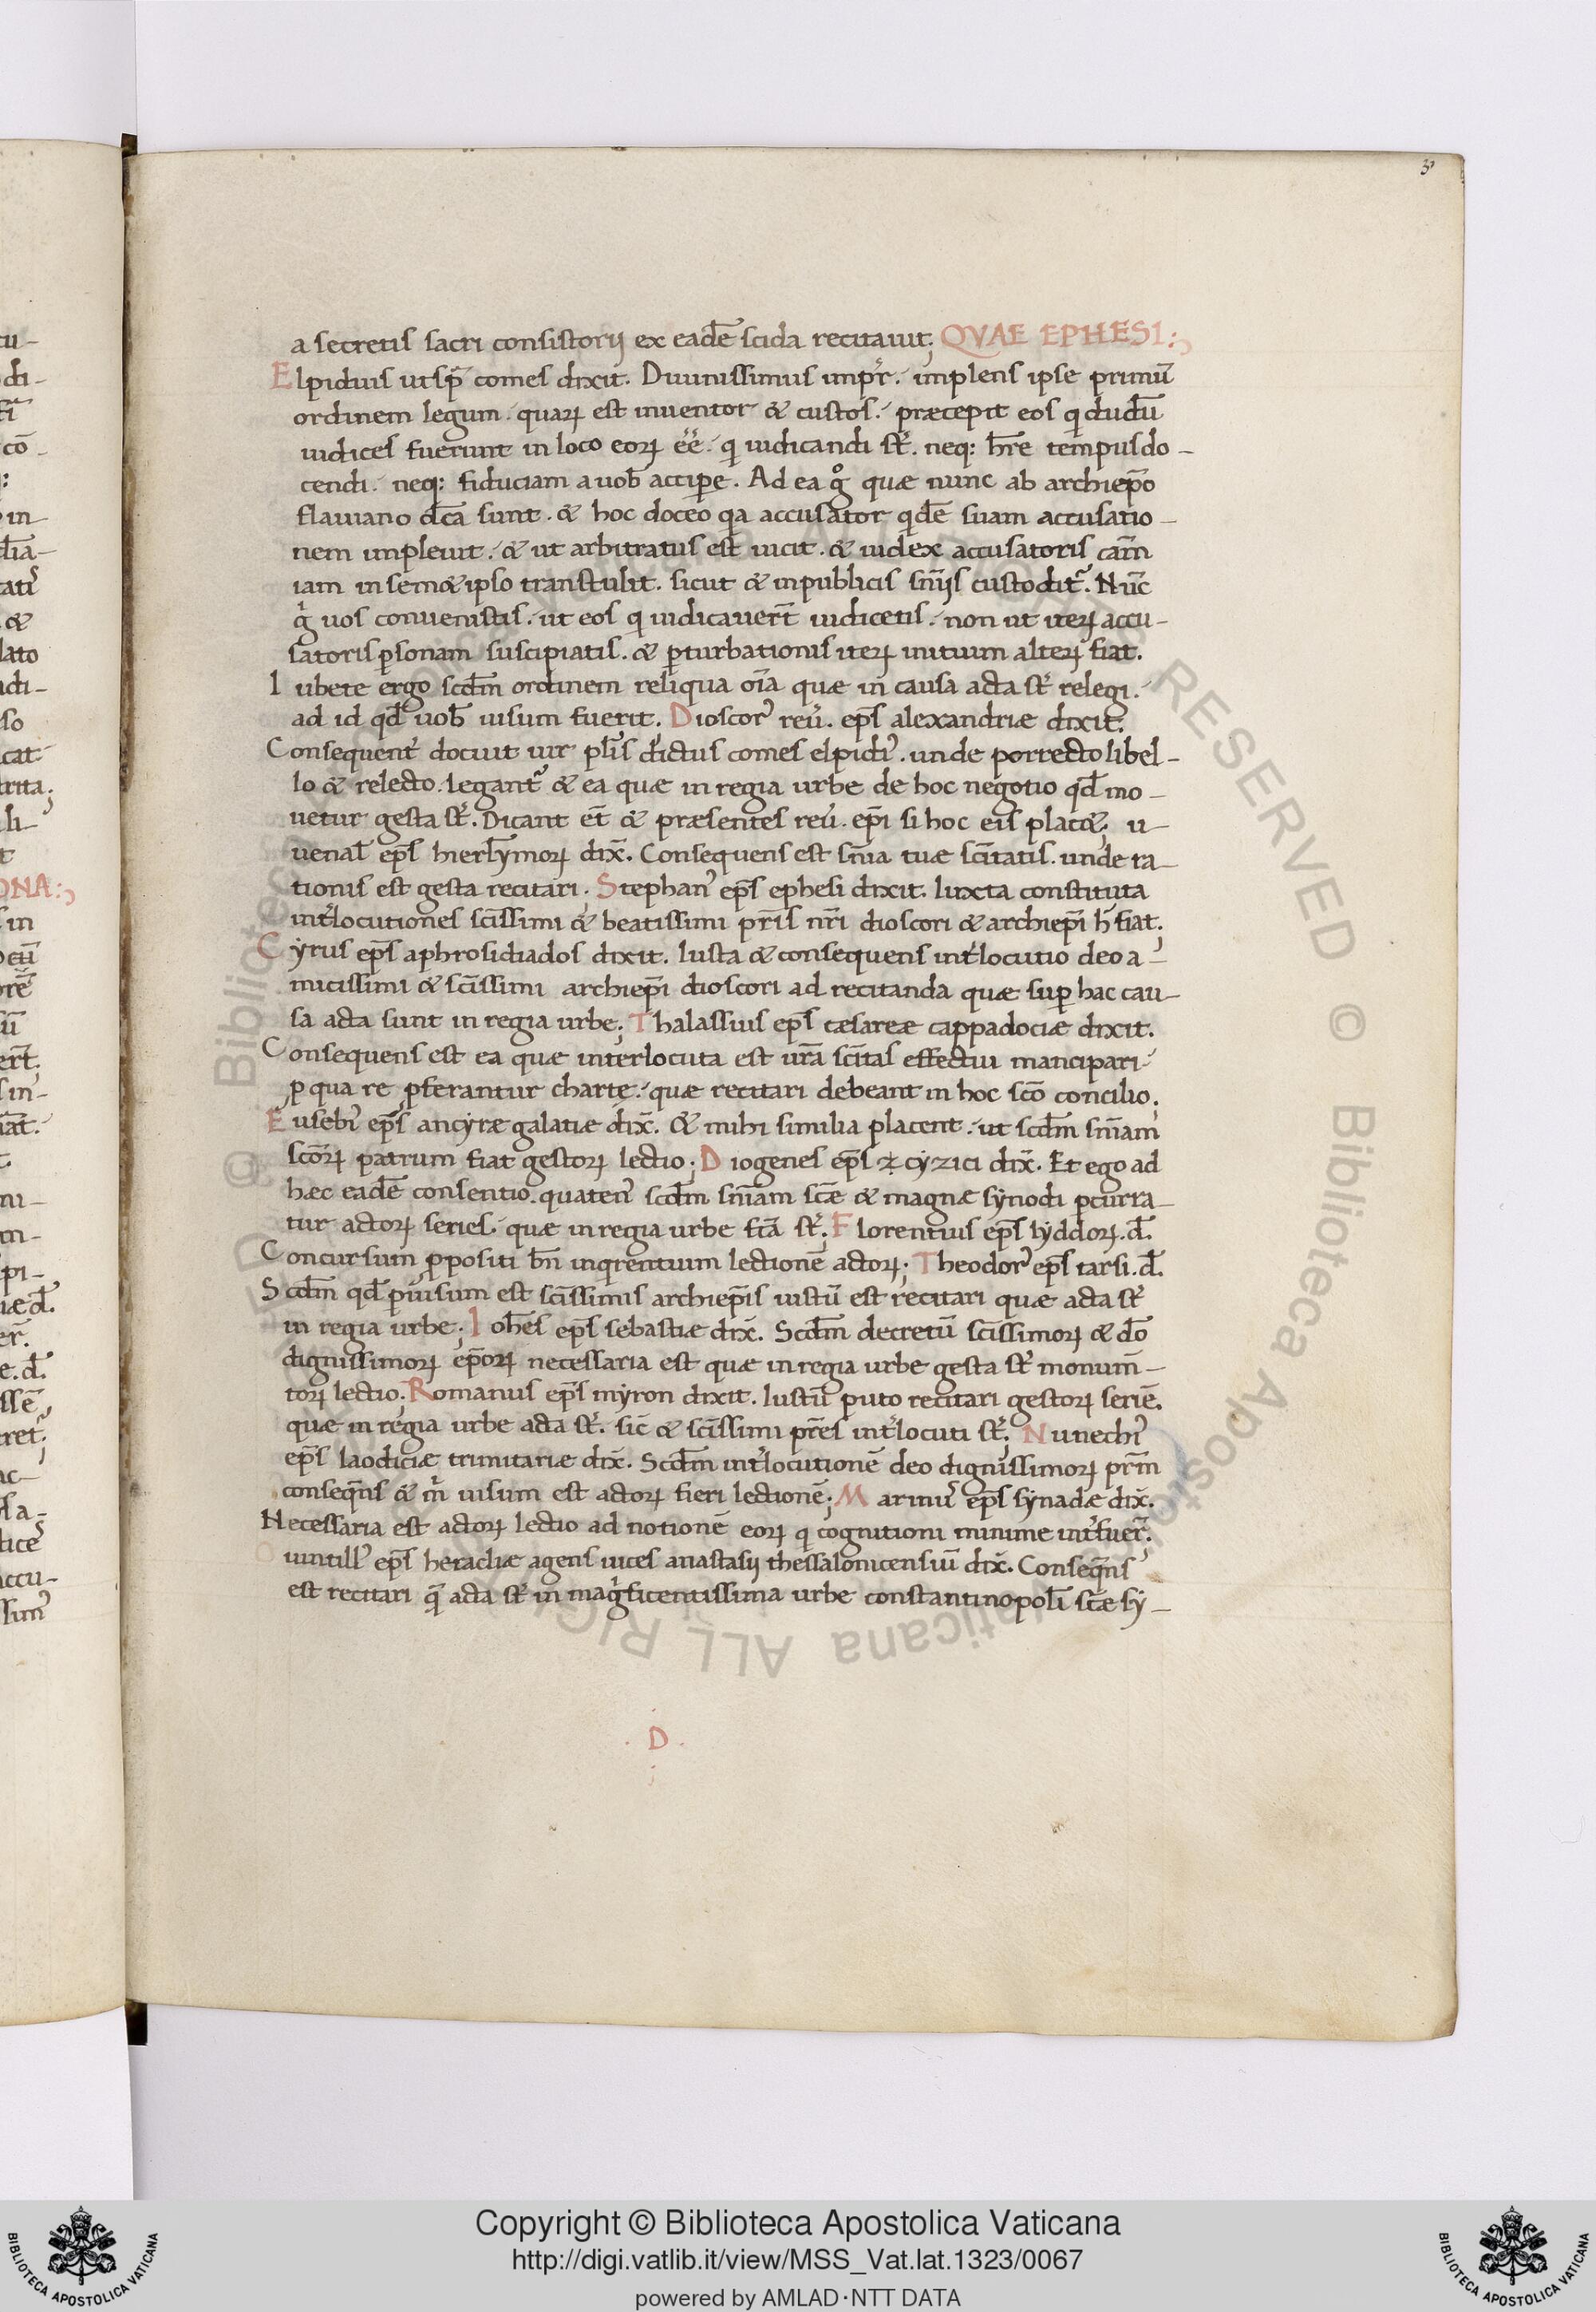 3
a secretis sacri consistorij ex eadē scida recitauit; QVAE EPHESI:
Elpidius ut sp̄ comes dixit. Diuinissimus imp̄r. implens ipse primū
ordinem legum. quaꝝ est inuentor & custos. præcepit eos qͥ dudū
iudices fuerunt in loco eoꝝ eē. qͥ iudicandi st̄. neq; hr̄e tempus do-
cendi. neq; fiduciam a uob̄ accipe. Ad ea gͦ quæ nunc ab archiep̄o
flauiano dc̄a sunt. & hoc doceo qͥa accusator qͥdē suam accusatio-
nem impleuit. & ut arbitratus est uicit. & iudex accusatoris cām
iam in sem&ipso transtulit. sicut & in publicis sn̄iis custodit᷑. Nūc
gͥ uos conuenistis. ut eos qͥ iudicauer̄t iudicetis. non ut iteꝝ accu-
satoris ꝑsonam suscipiatis. & ꝑturbationis iteꝝ initium alteꝝ fiat.
Iubete ergo scd̄m ordinem reliqua oīa quæ in causa acta st̄ relegi.
ad id qd̄ uob̄ uisum fuerit. Dioscor᷒ reū. ep̄s alexandriæ dixit;
Consequent̄ docuit uir pl̄is dictus comes elpidi᷒. unde porrecto libel-
lo & relecto. Legant᷑ & ea quæ in regia urbe de hoc negotio qd̄ mo-
uetur gesta st̄. Dicant et̄ & præsentes reū. ep̄i si hoc eis plac&; u-
uenal̄ ep̄s hierl̄ymoꝝ dix̄. Consequens est sn̄ia tuæ sc̄itatis. unde ra-
tionis est gesta recitari; Stephan᷒ ep̄s ephesi dixit. Iuxta constituta
int̄locutiones sc̄issimi & beatissimi pr̄is nr̄i dioscori & archiep̄i h̄ fiat;
Cyrus ep̄s aphrosidiados dixit. Iusta & consequens int̄locutio deo a-
micissimi & sc̄issimi archiep̄i dioscori ad recitanda quæ suꝑ hac cau-
sa acta sunt in regia urbe; Thalassius ep̄s cæsareæ cappadociæ dixit.
Consequens est ea quæ interlocuta est ur̄a sc̄itas effectui mancipari
ꝓ qua re ꝓferantur charte. quæ recitari debeant in hoc sc̄o concilio;
Eusebi᷒ ep̄s ancyræ galatiæ dix̄. & mihi similia placent. ut scd̄m sn̄iam
sc̄oꝝ patrum fiat gestoꝝ lectio; Diogenes ep̄s zcyzici dix̄. Et ego ad
hæc eadē consentio. quaten᷒ scd̄m sn̄iam sc̄æ & magnæ synodi ꝑcurra-
tur actoꝝ series. quæ in regia urbe fc̄a st̄; Florentius ep̄s lyddoꝝ. d̄.
Concursum ꝓpositi bn̄ inqͥrentium lectionē actoꝝ; Theodor᷒ ep̄s tarsi. d̄.
Scd̄m qd̄ ꝑuisum est sc̄issimis archiep̄is iustū est recitari quæ acta st̄
in regia urbe; Ioh̄es ep̄s sebastiæ dix̄. Scd̄m decretū sc̄issimoꝝ & dō
dignissimoꝝ ep̄oꝝ necessaria est quæ in regia urbe gesta st̄ monum̄-
toꝝ lectio. Romanus ep̄s myron dixit. Iustū puto recitari gestoꝝ seriē.
quæ in regia urbe acta st̄. sic̄ & sc̄issimi pr̄es int̄locuti st̄; Nunechi᷒
ep̄s laodiciæ trimitariæ dix̄. Scd̄m int̄locutionē deo dignissimoꝝ pr̄m
conseqn̄s & mͥ uisum est actoꝝ fieri lectionē; Marini᷒ ep̄s synadæ dix̄.
Necessaria est actoꝝ lectio ad notionē eoꝝ qͥ cognitioni minime int̄fuer̄;
Quintill᷒ ep̄s heracliæ agens uices anastasij thessalonicensiū dix̄. Conseqn̄s
est recitari q̄ acta st̄ in magͥficentissima urbe constantinopoli sc̄æ sy-
. D .
© Biblioteca Apostolica Vaticana ALL RIGHTS RESERVED © Biblioteca Apostolica Vaticana ALL RIGHTS RESERVED
Copyright © Biblioteca Apostolica Vaticana
http://digi.vatlib.it/view/MSS_Vat.lat.1323/0067
powered by AMLAD·NTT DATA
BIBLIOTECA APOSTOLICA VATICANA
BIBLIOTECA APOSTOLICA VATICANA